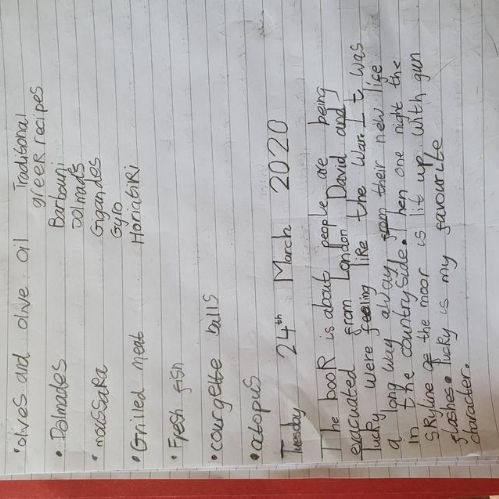 • olives and olive oil
• Dolmades
• moussaka
• Grilled meat
• Fresh fish
• courgette balls
• octopus
Traditional
greeR recipes
Barbouni
Dolmades
Gigandes
Gyro
HoriatiRi
Tuesday 24th March 2020
The booR is about people are being
evacuated from London David and
lucky were feeling like the War. It was
a long way away from their new life
in the countryside. Then one night the
sRyline of the moor is lit up with gun
flashes. lucky is my favourite
character.